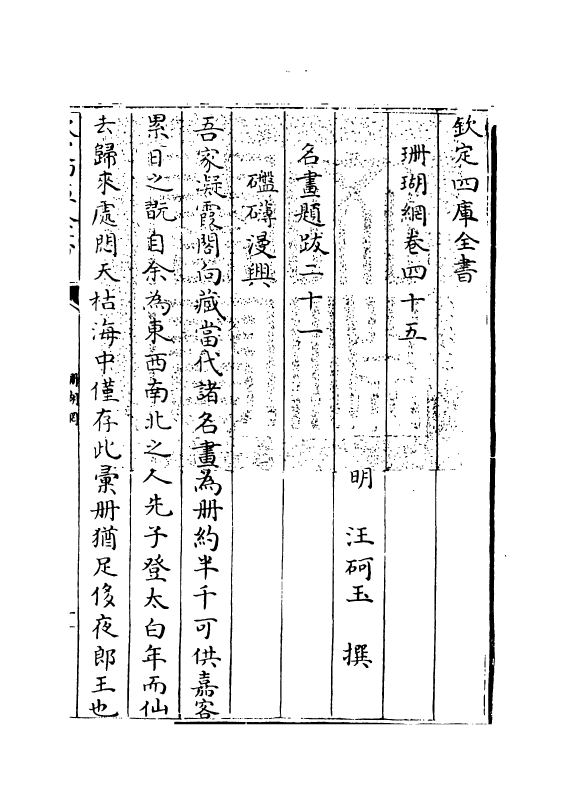 欽定四庫全書
珊瑚網卷四十五
明 汪砢玉 撰
名畫題跋二十一
礛礴漫興
吾家凝霞閣向蔵當代諸名畫為册約半千可供嘉客
累日之翫自余為東西南北之人先子登太白年而仙
去歸來處悶天枯海中僅存此彚册猶足侈夜郎王也
珊瑚網
一